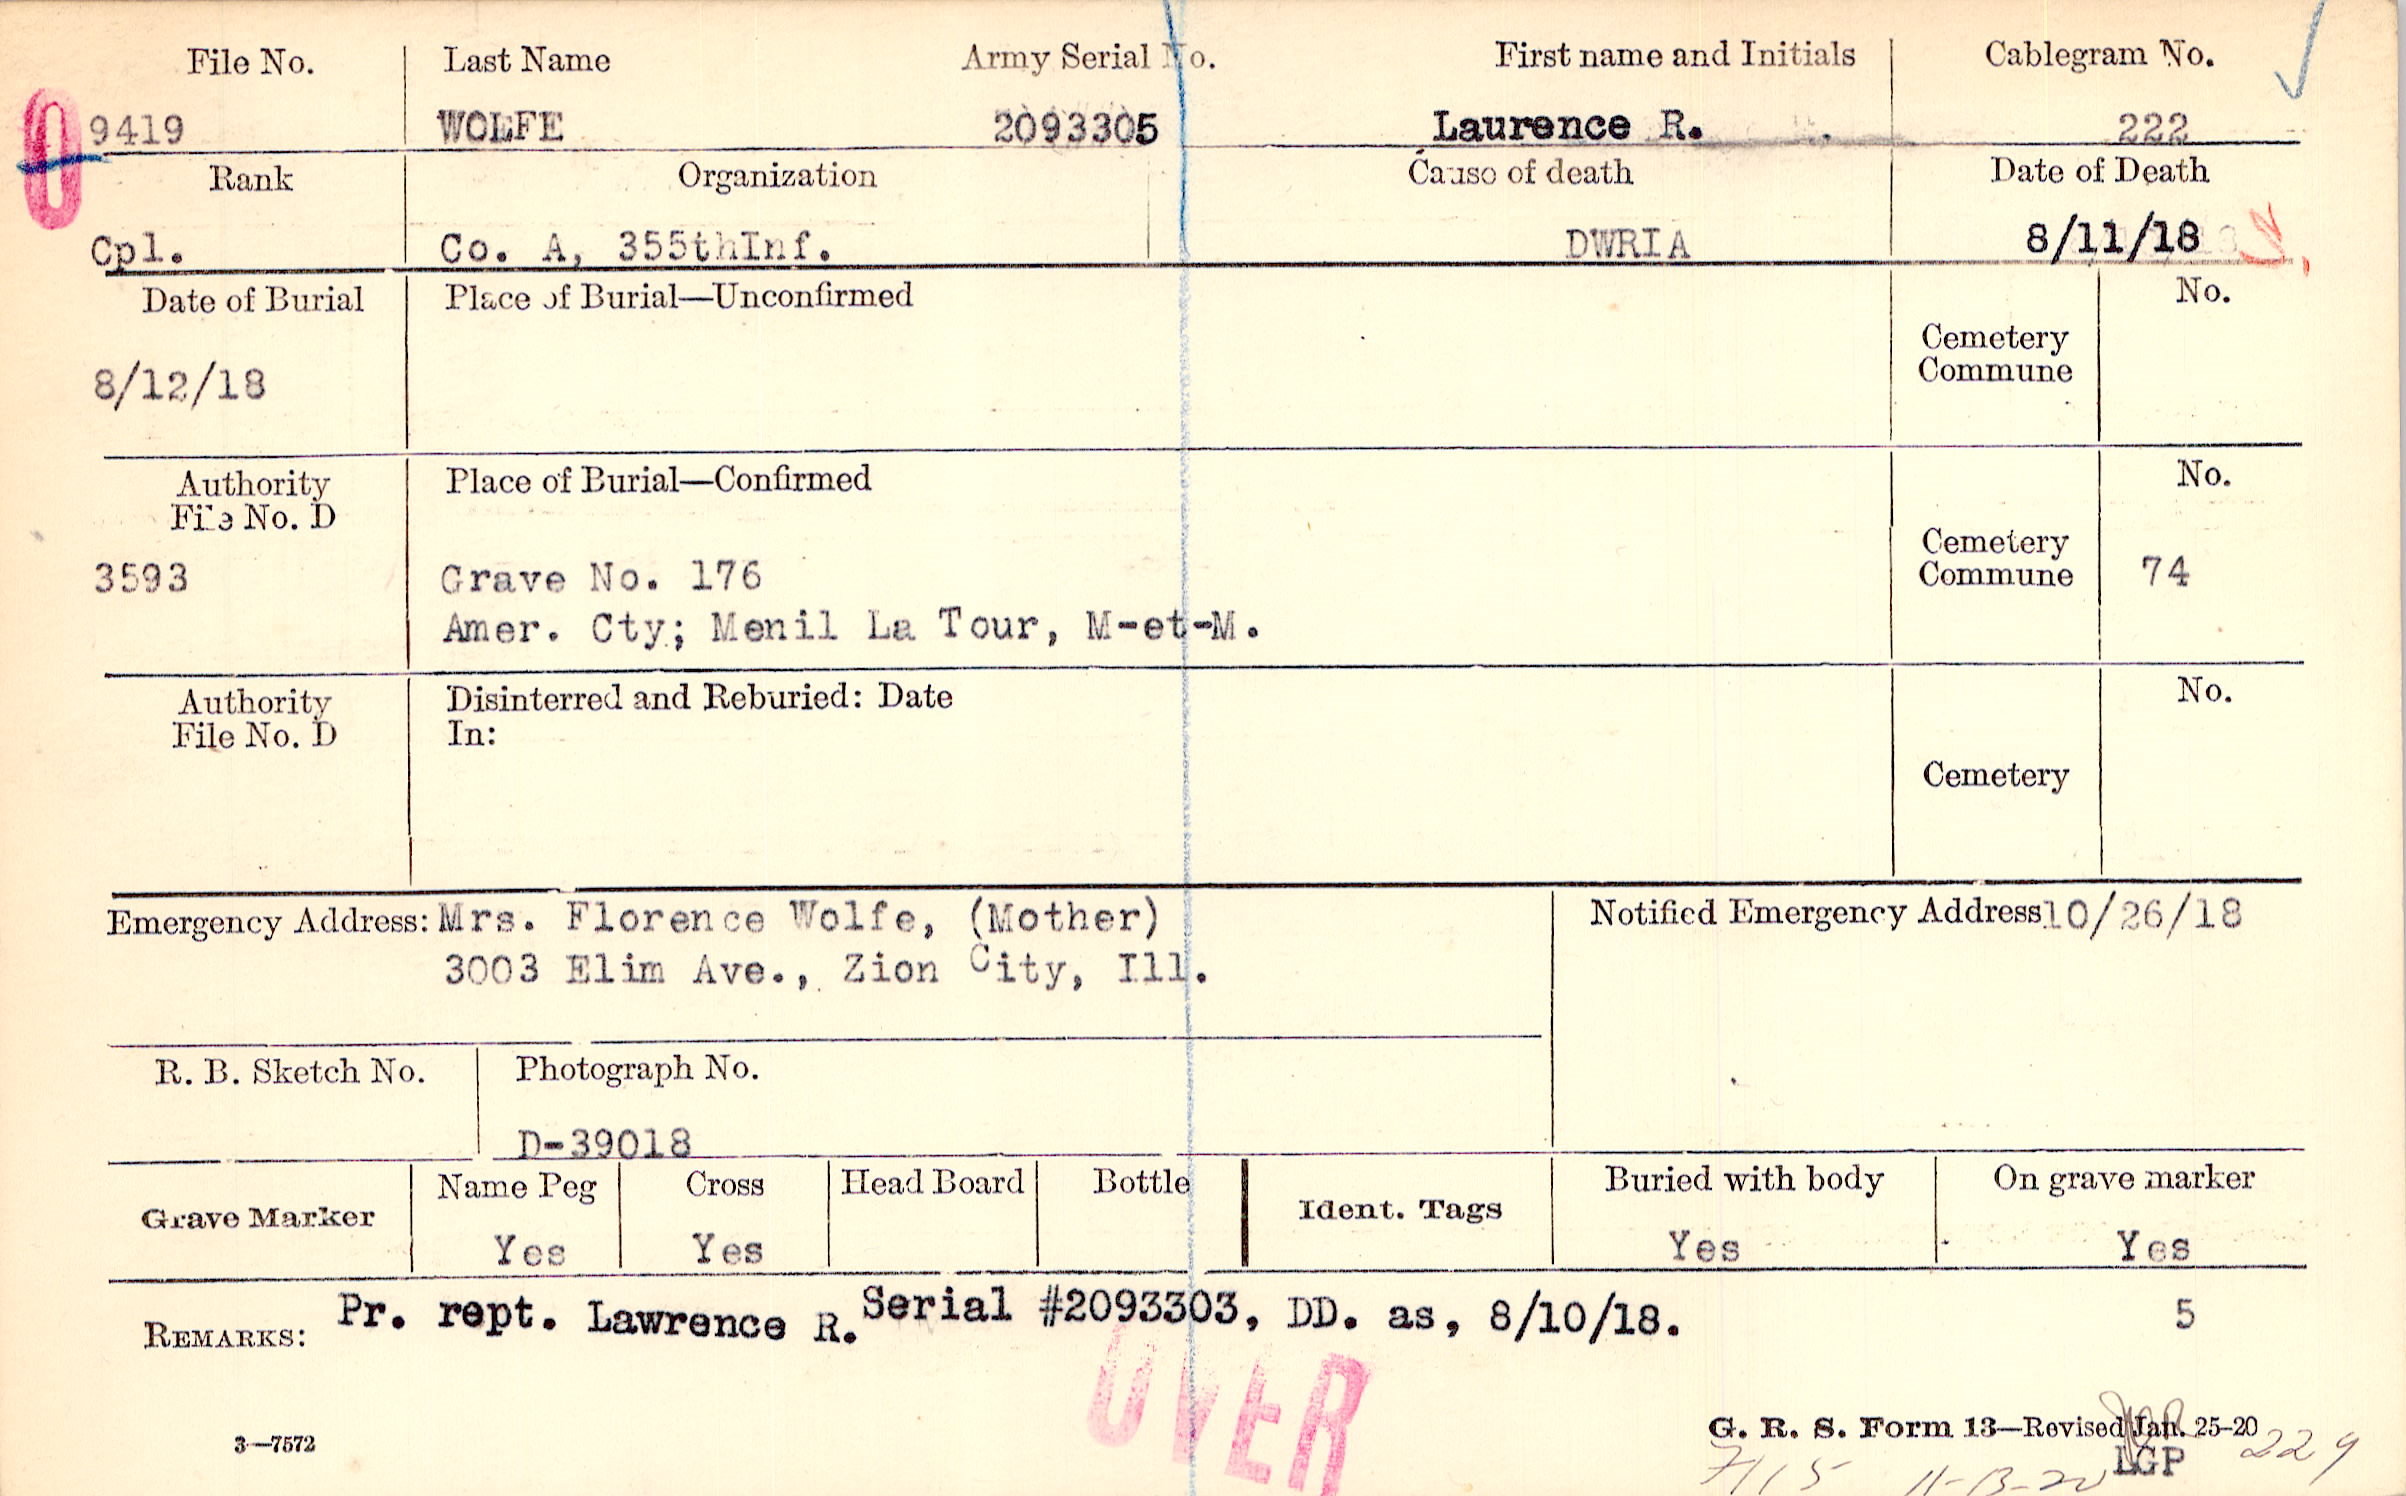 File No. Last Name Army Serial No. First name and Initials Cablegram No.
0 9419 WOLFE 2093305 Laurence R. 222
Rank Organization Cause of death Date of Death
Cpl. Co. A, 355thInf. DWRIA 8/11/18
Date of Burial Place of Burial—Unconfirmed No.
8/12/18 Cemetery
Commune
Authority Place of Burial—Confirmed No.
File No. D
Cemetery
3593 Grave No. 176 Commune 74
Amer. Cty; Menil La Tour, M-et-M.
Authority Disinterred and Reburied: Date No.
File No. D In:
Cemetery
Emergency Address: Mrs. Florence Wolfe, (Mother) Notified Emergency Address 10/26/18
3003 Elim Ave., Zion City, Ill.
R. B. Sketch No. Photograph No.
D-39018
Grave Marker Name Peg Cross Head Board Bottle Ident. Tags Buried with body On grave marker
Yes Yes Yes Yes
REMARKS: Pr. rept. Lawrence R. Serial #2093303, DD. as, 8/10/18. 5
OVER
3—7572 G. R. S. Form 13—Revised Jan. 25-20
LGP 229
7115 11-13-20